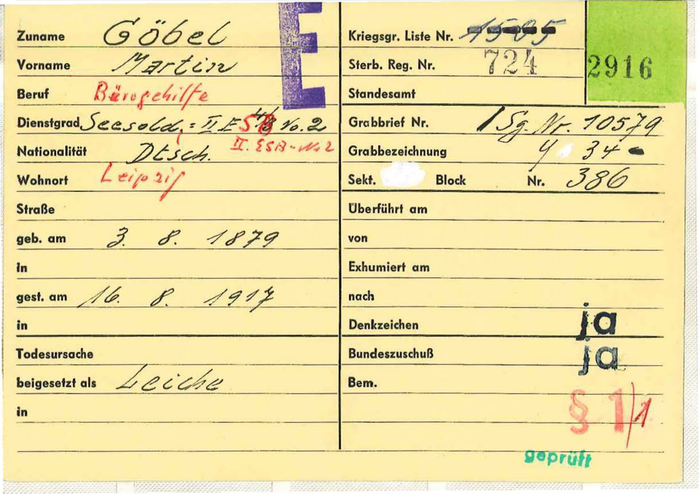 E
Zuname Göbel
Vorname Martin
Beruf Bürogehilfe
Dienstgrad Seesold. II. E.
II. ESA-No 2
Nationalität Dtsch.
Wohnort Leipzig
Straße
geb. am 3. 8. 1879
in
gest. am 16. 8. 1917
in
Todesursache
beigesetzt als Leiche
in
Kriegsgr. Liste Nr. 1505
Sterb. Reg. Nr. 724
2916
Standesamt
Grabbrief Nr. Sg. Nr. 10579
Grabbezeichnung 4 34
Sekt. Block Nr. 386
Überführt am
von
Exhumiert am
nach
Denkzeichen ja
Bundeszuschuß ja
Bem.
§ 1/1
geprüft